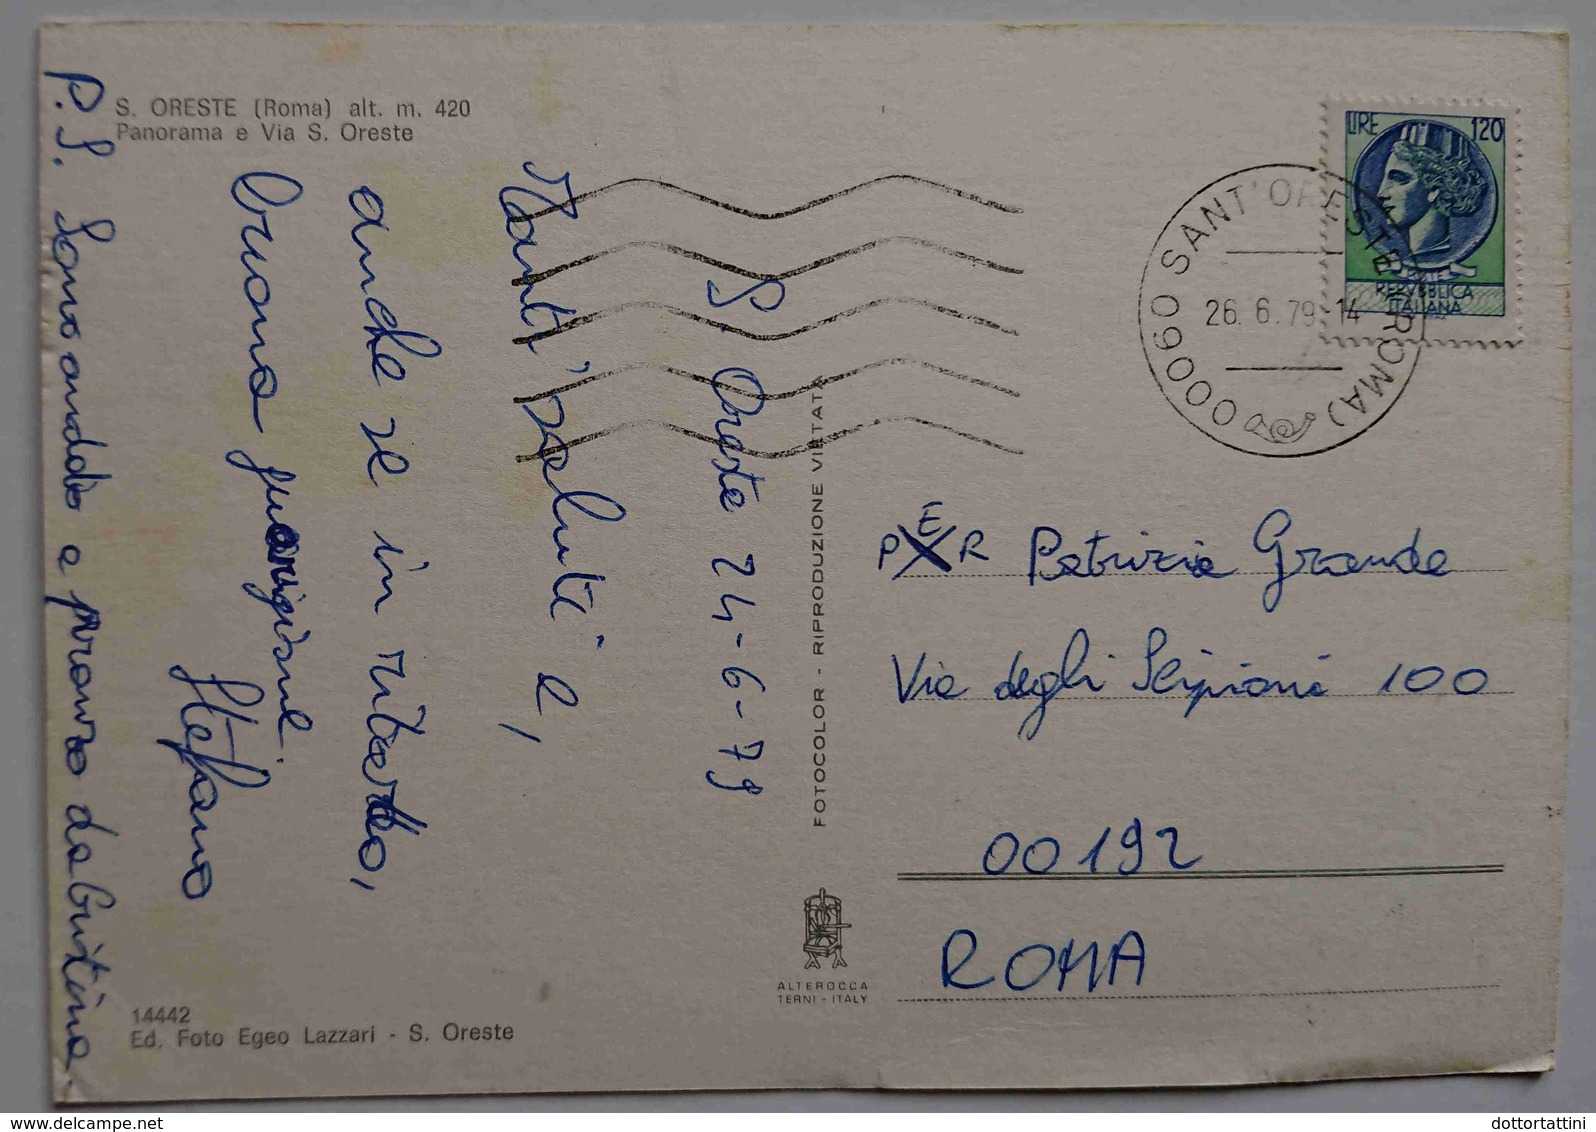 S. ORESTE (Roma) alt. m. 420
Panorama e Via S. Oreste
S. Oreste 24-6-79
Tanti "saluti" e,
anche se in ritardo,
buona guarigione
Stefano
P.S. Sono andato a pranzo da Cristina.
FOTOCOLOR - RIPRODUZIONE VIETATA
ALTEROCCA
TERNI - ITALY
14442
Ed. Foto Egeo Lazzari - S. Oreste
LIRE 120
REPVBBLICA
ITALIANA
00060 SANT'ORESTE (ROMA)
26.6.79-14
PER Patrizia Grande
Via degli Scipioni 100
00192
ROMA
dottortattini